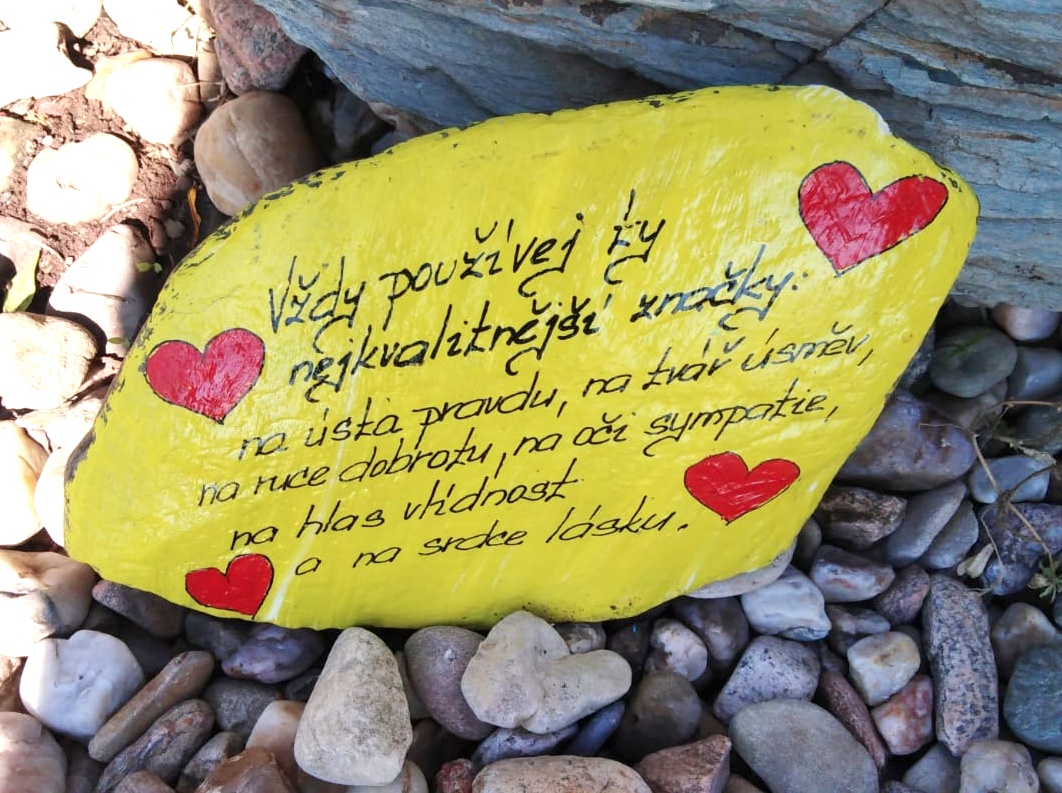 Vždy používej ty
nejkvalitnější značky:
na ústa pravdu, na tvář úsměv,
na ruce dobrotu, na oči sympatie,
na hlas vlídnost
a na srdce lásku.